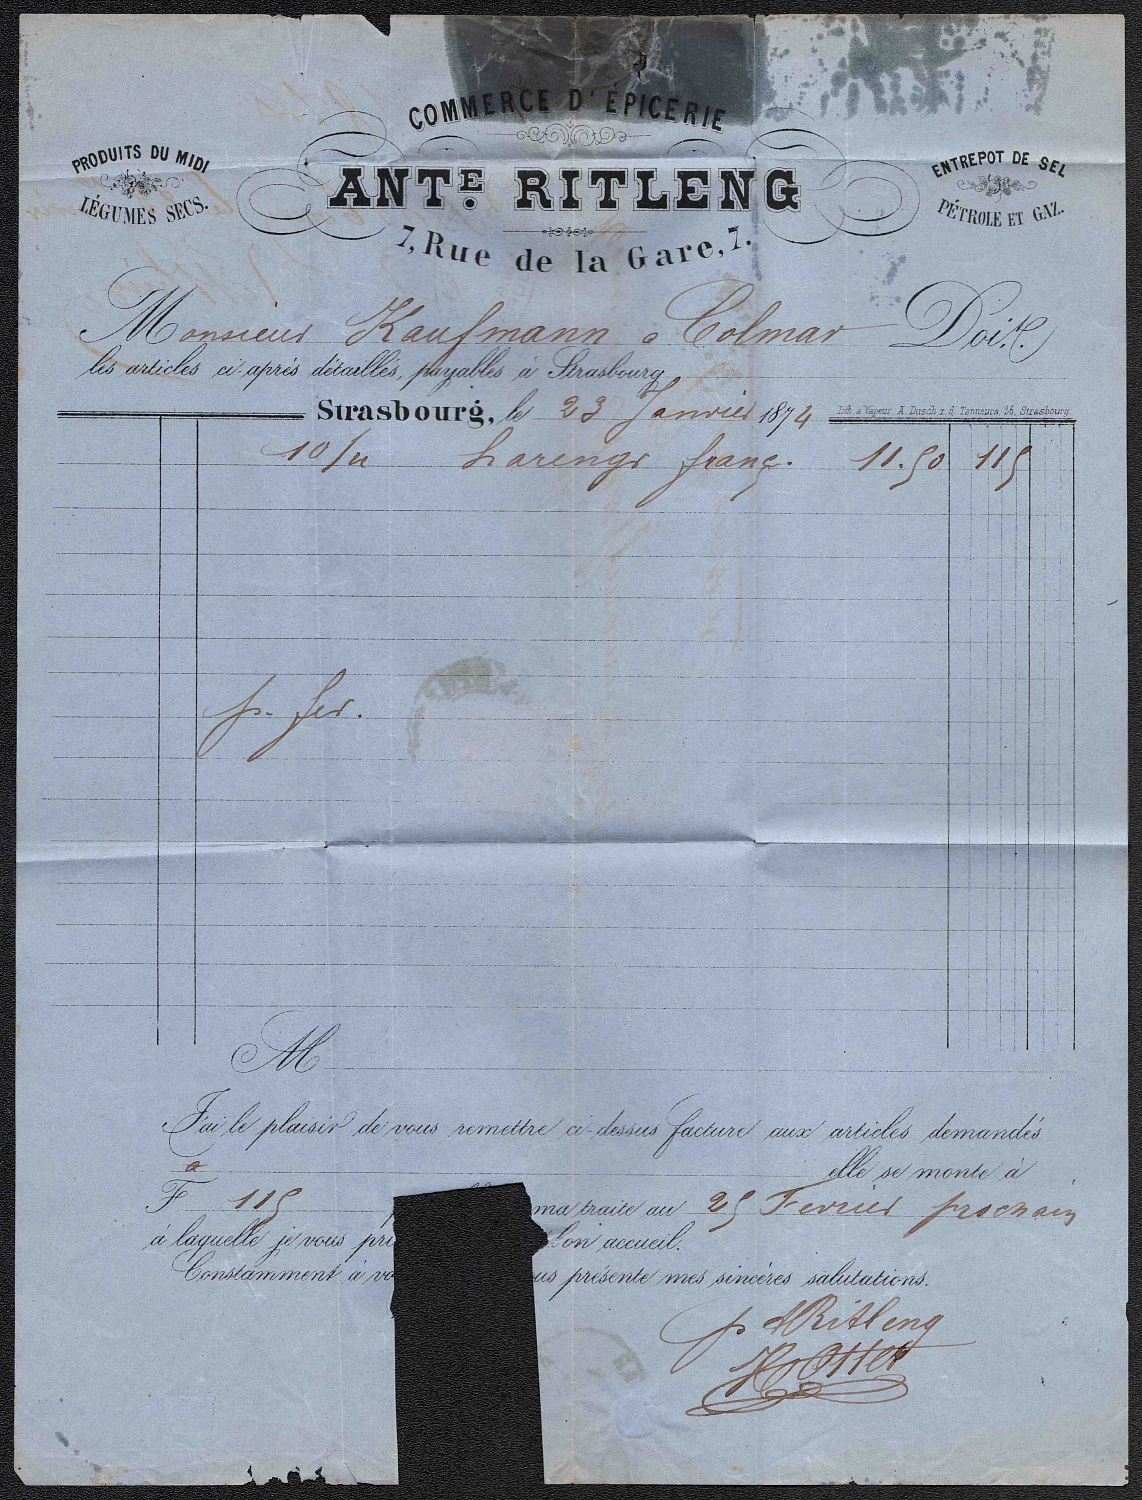 COMMERCE D'ÉPICERIE
PRODUITS DU MIDI
LÉGUMES SECS.
ANTE. RITLENG
ENTREPOT DE SEL
PÉTROLE ET GAZ.
7, Rue de la Gare, 7.
Monsieur Kaufmann a Colmar Doit
les articles ci-après détaillés, payables à Strasbourg
Strasbourg, le 23 Janvier 1874
Lith. à Vapeur A. Dusch r. d. Tanneurs, 26, Strasbourg
10/u harengs franç. 11.50 115
p. fer.
M
J'ai le plaisir de vous remettre ci-dessus facture aux articles demandés
elle se monte à
F 115 ma traite au 25 Fevrier prochain
à laquelle je vous pri bon accueil.
Constamment à vo us présente mes sincères salutations.
p A Ritleng